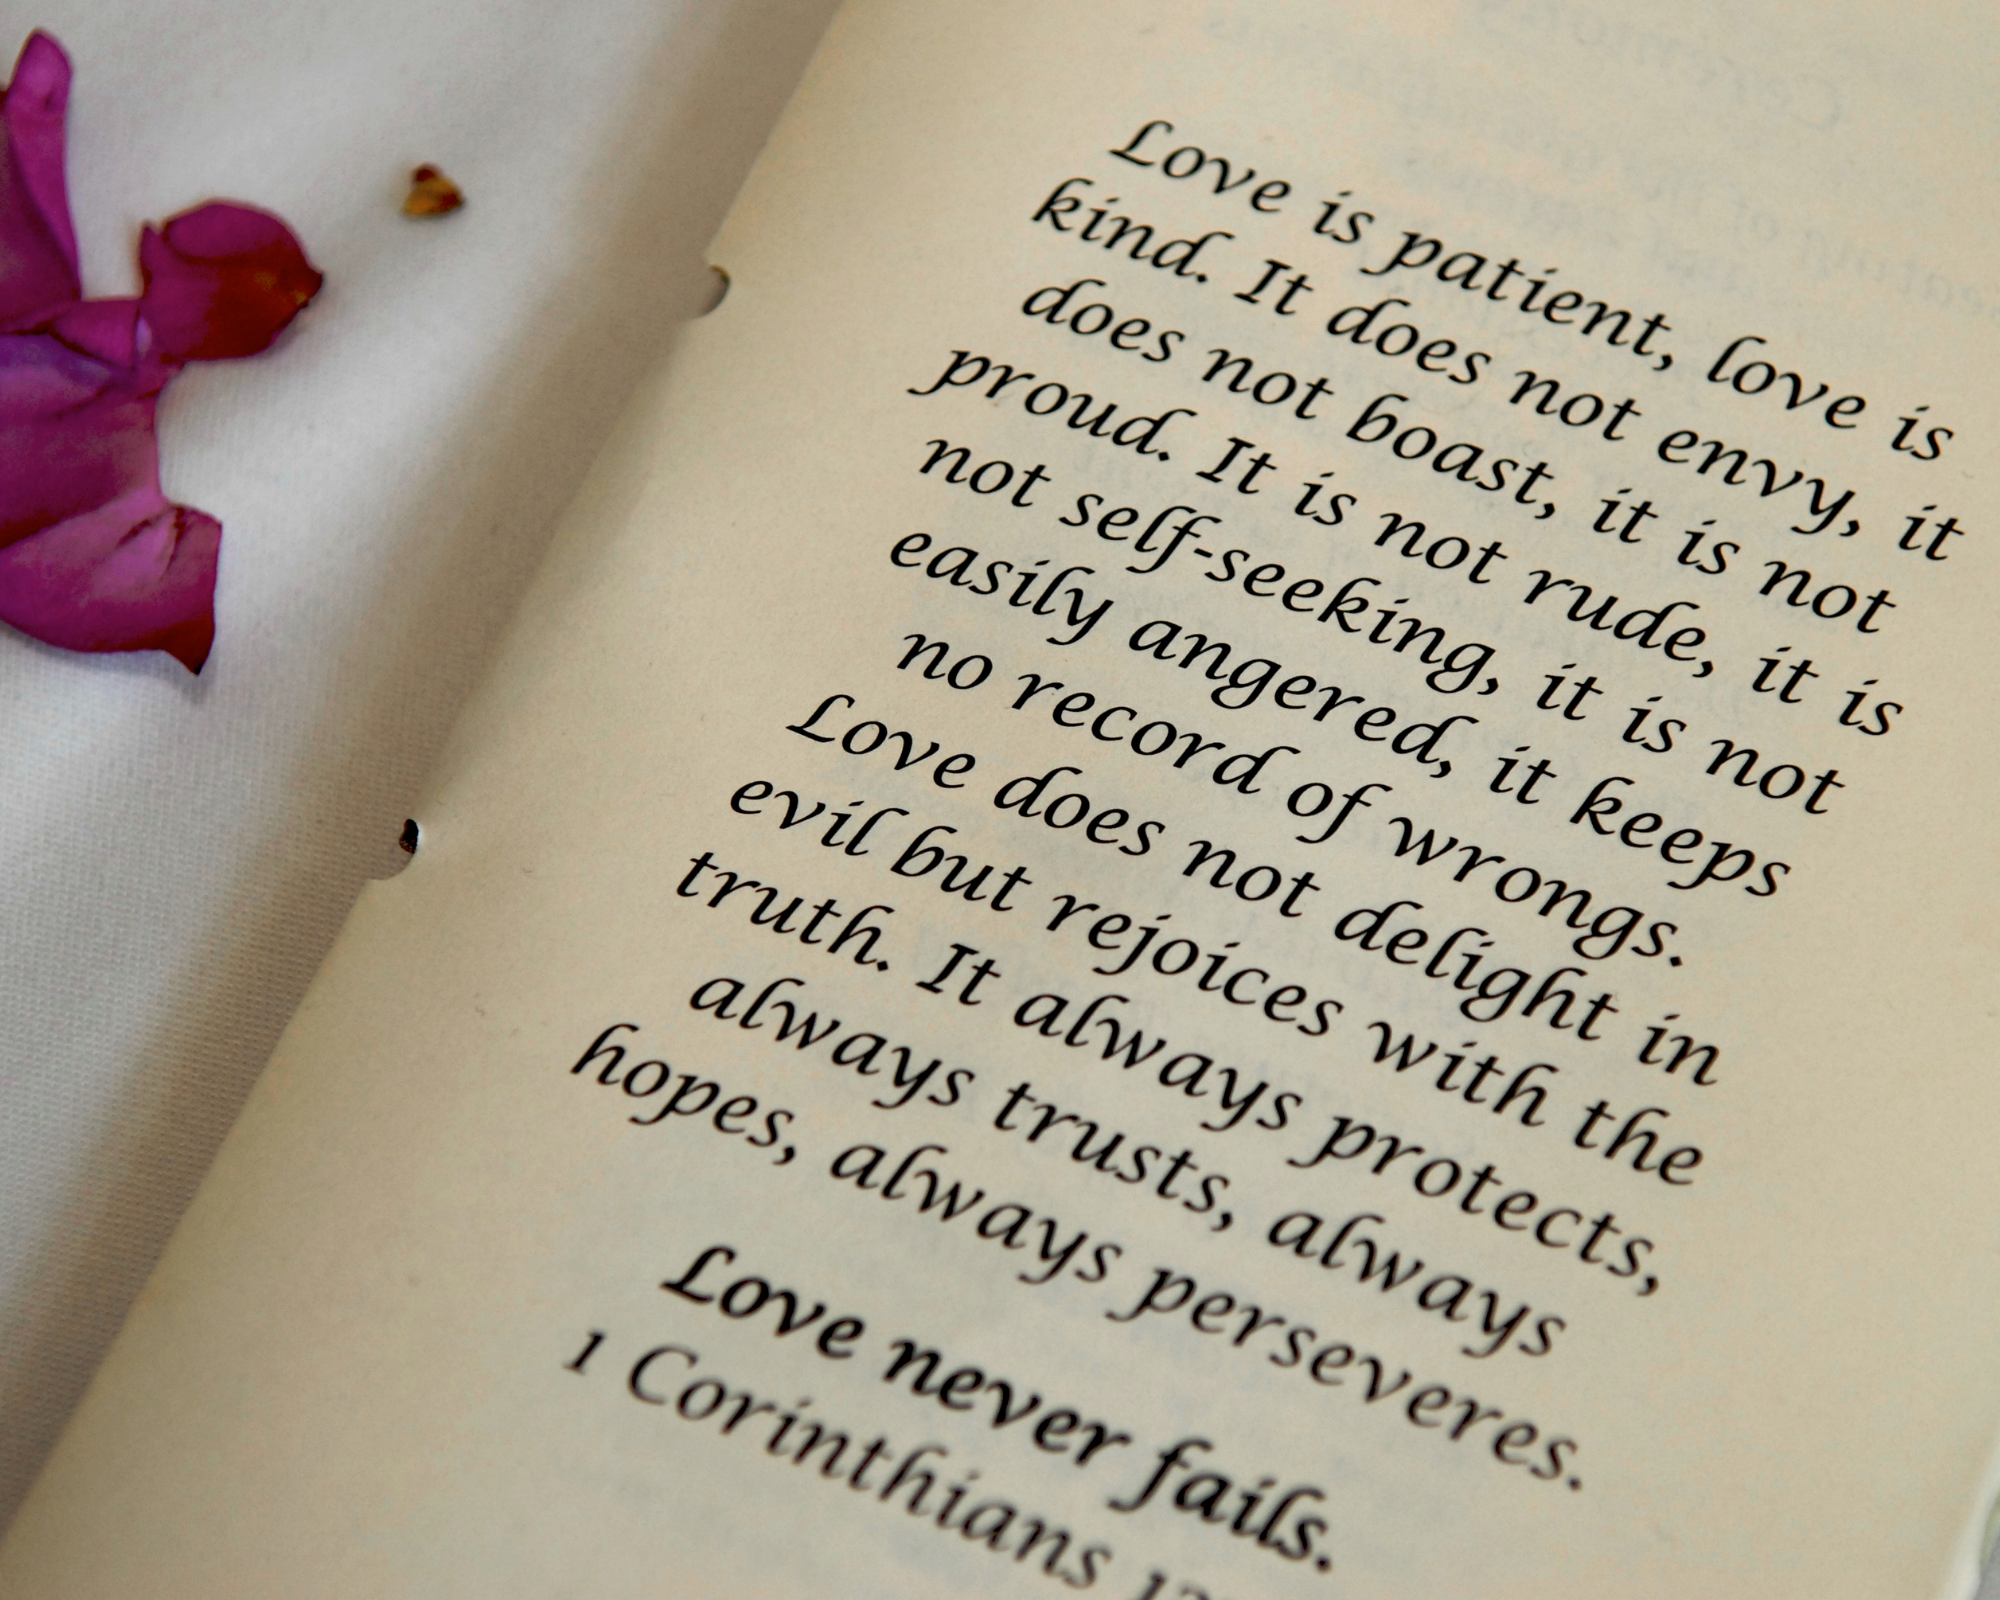 Love is patient, love is
kind. It does not envy, it
does not boast, it is not
proud. It is not rude, it is
not self-seeking, it is not
easily angered, it keeps
no record of wrongs.
Love does not delight in
evil but rejoices with the
truth. It always protects,
always trusts, always
hopes, always perseveres.
Love never fails.
1 Corinthians